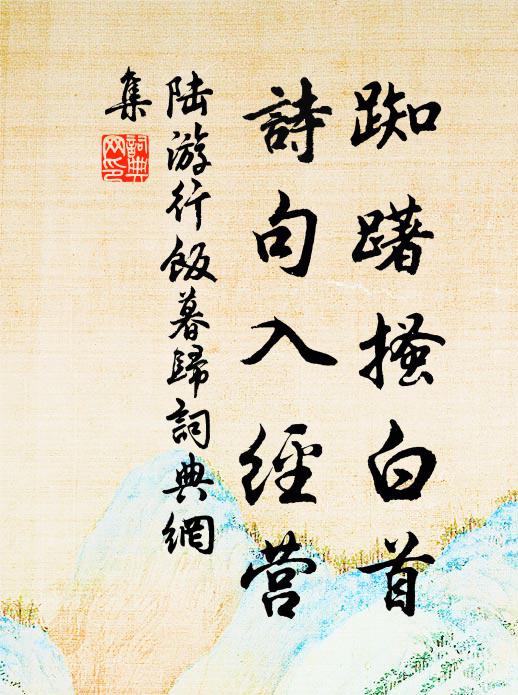 踟躇搔白首
詩句入經营
陸游行飯暮歸詞典網
集
詞典網印